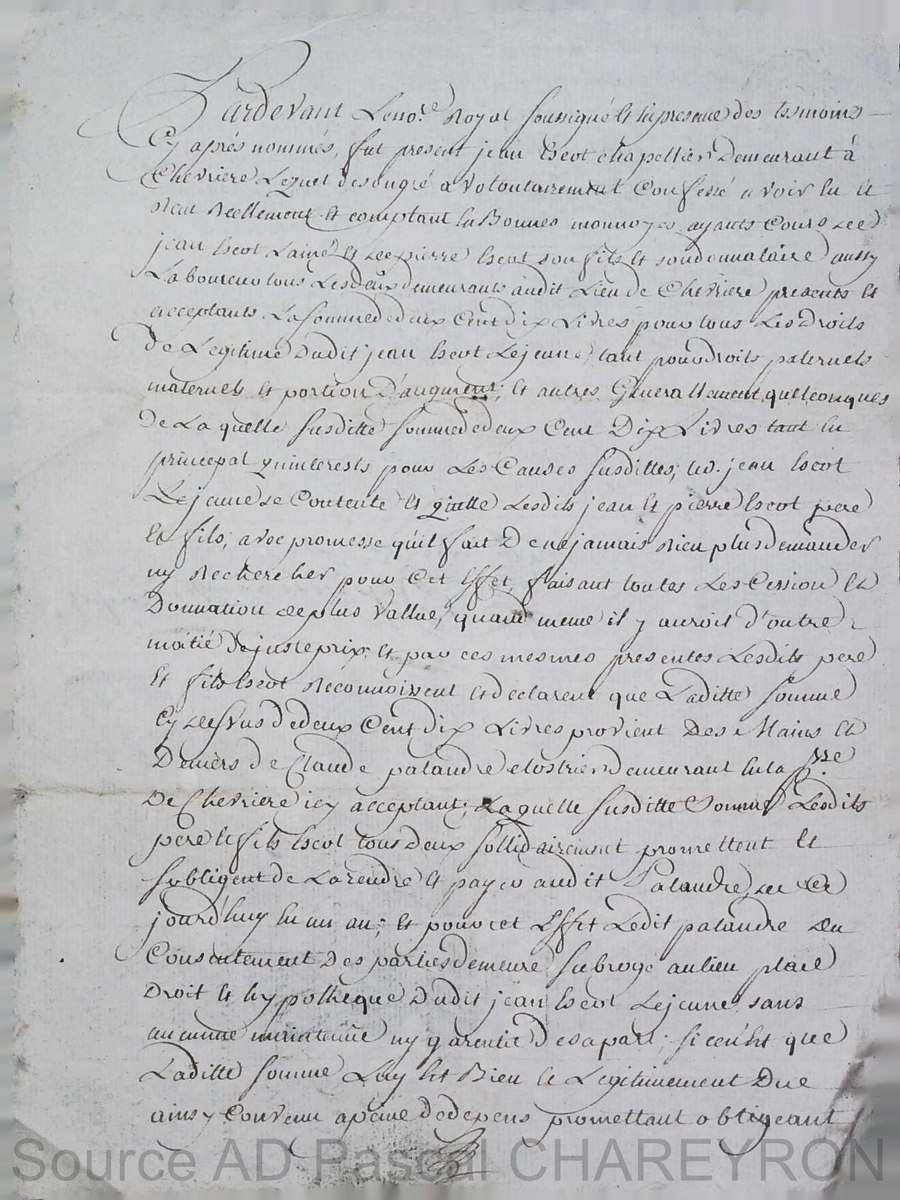 Pardevant Le no.re Royal soussigné et en presence des tesmoins
Cy aprés nommés, fut present jean Escot chapellier Demeurant à
Chevriere Lequel de son gré a volontairement Confessé avoir eu et
Receu Reellement et comptant en Bonnes monnoyes ayants Cours de
jean Escot L'ainé et de pierre Escot son fils et son donnataire aussy
Laboureurs tous Les deux demeurants audit Lieu de Chevriere presents et
acceptants La somme de deux Cent dix Livres pour tous Les Droits
de Legitime dudit jean Escot Le jeune, tant pour droits paternels
maternels et portion D'augment, et autres Generallement quelconques
de La quelle susditte somme de deux Cent Dix Livres tant en
principal qu'interests pour Les Causes susdittes, led. jean Escot
Le jeune se Contente et quitte Lesdits jean et pierre Escot pere
et fils, avec promesse qu'il fait De ne jamais Rien plus demander
ny Rechercher pour Cet Effet, faisant toutes Les Cession et
Donnation de plus vallue, quand meme il y auroit d'outre
moitié de juste prix. Et par ces mesmes presentes Lesdits pere
et fils Escot Reconnoissent et declarent que Laditte somme
Cy dessus de deux Cent dix Livres provient Des Mains et
Deniers de Claude palandre clostrier demeurant en la p.sse
De Chevriere icy acceptant, Laquelle susditte Somme Lesdits
pere et fils Escot tous deux sollidairement promettent et
s'obligent de La rendre et payer audit Palandre, de Ce
jourd'huy en un an, et pour cet Effet Ledit palandre Du
Consentement Des parties demeure subrogé au lieu place
Droit et hypotheque dudit jean Escot Le jeune sans
aucune maintenue ny garentie de sa part, si ce n'est que
Laditte somme Luy est Bien et Legitimement Due
ainsy Convenu a peine de depens promettant obligeant
Source AD Pascal CHAREYRON